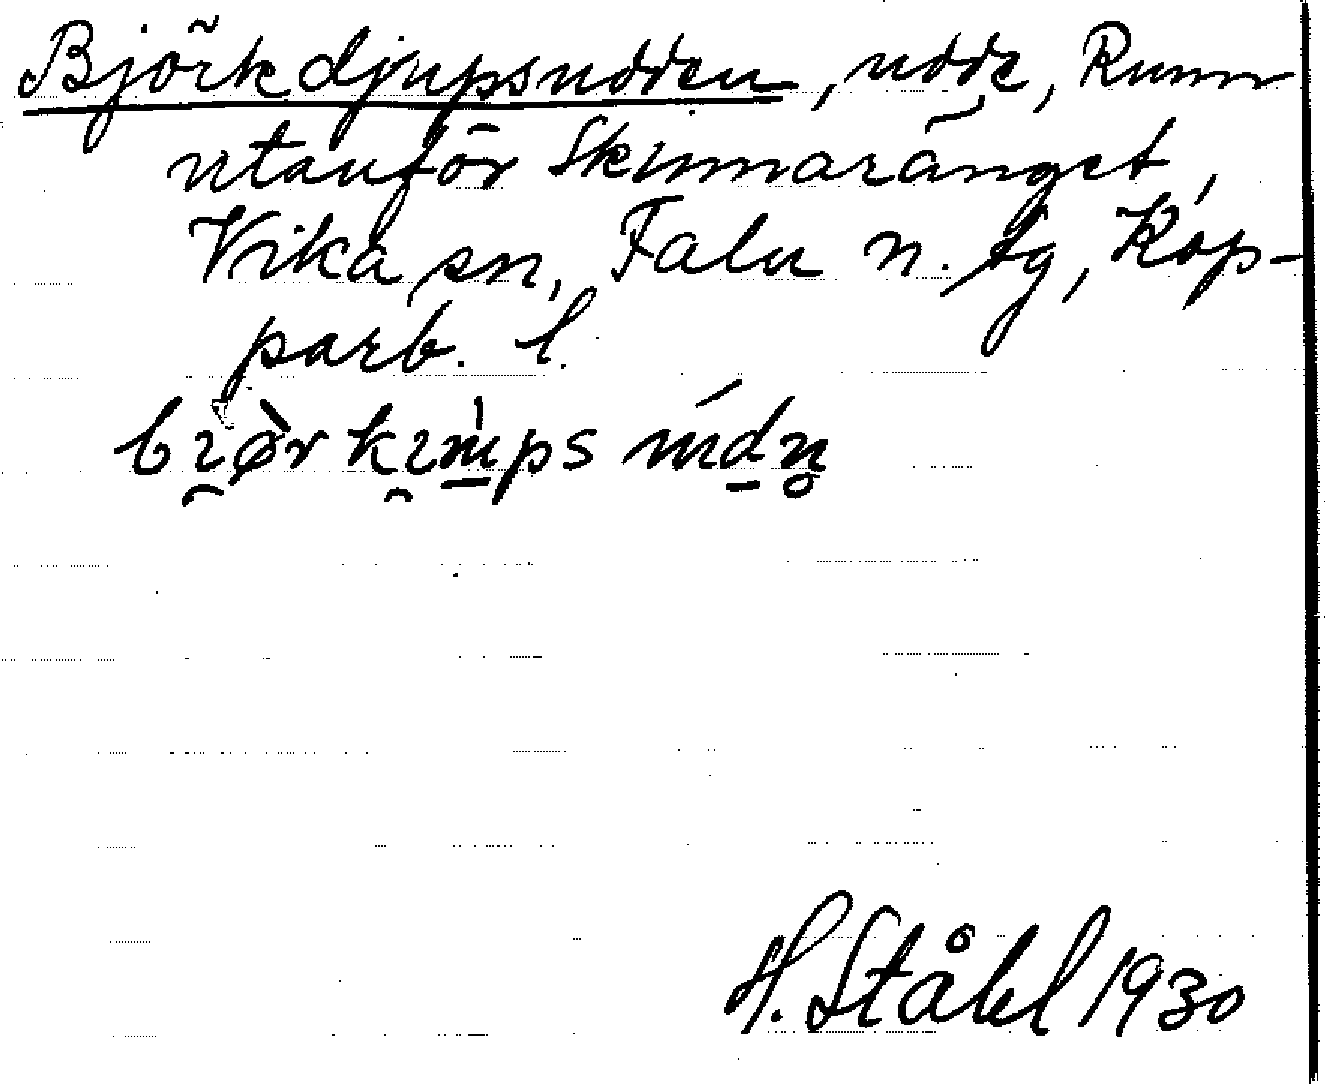 Björkdjupsudden, udde, Runn
utanför Skinnaränget,
Vika sn, Falu n. tg, Kop-
parb. l.
H. Ståhl 1930